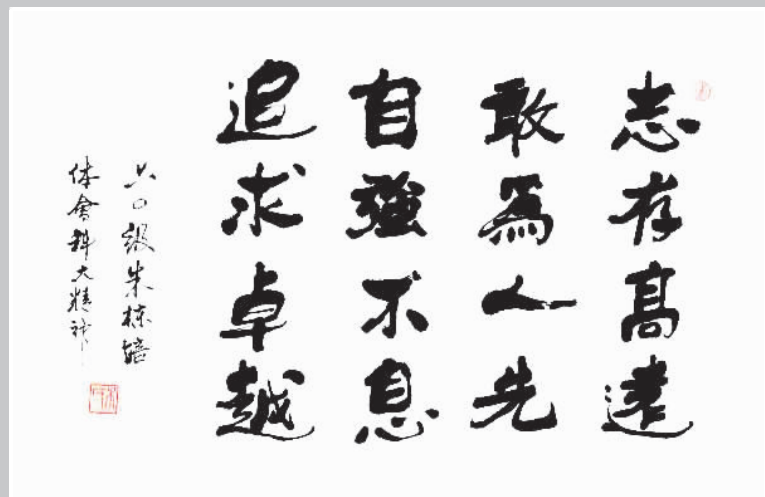 志存高遠
敢為人先
自強不息
追求卓越
六〇級朱棟培
体會科大精神